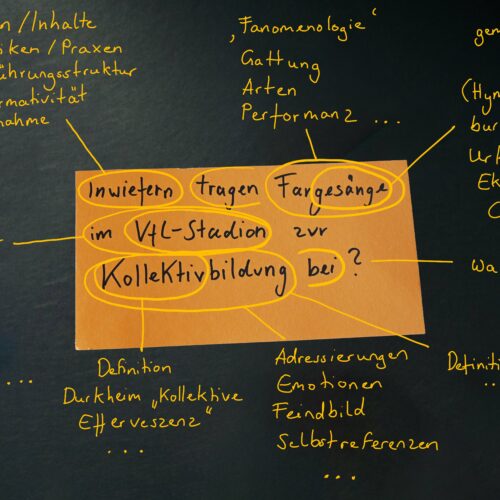 n //Inhalte
iken / Praxen
ührungsstruktur
rmativität
nahme
„Fanomenologie“
Gattung
Arten
Performanz ...
(Hym
Inwiefern tragen Fangesänge
im VfL-Stadion zur
Kollektivbildung bei?
wa
Definition
Durkheim „Kollektive
Efferveszenz“
...
...
Adressierungen
Emotionen
Feindbild
Selbstreferenzen
...
Definitio
...